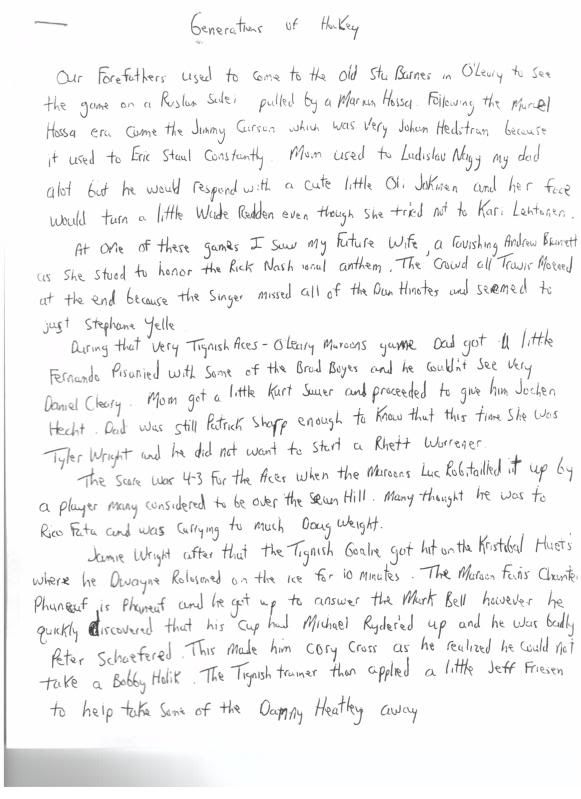 Generations of Hockey
Our Forefathers used to come to the old Stu Barnes in O'Leary to see
the game on a Ruslan Salei pulled by a Marian Hossa. Following the Marcel
Hossa era came the Jimmy Carson which was very Johan Hedstrom because
it used to Eric Staal Constantly. Mom used to Ladislav Nagy my dad
alot but he would respond with a cute little Oli Jokinen and her face
would turn a little Wade Redden even though she tried not to Kari Lehtonen.
At one of these games I saw my future wife, a ravishing Andrew Brunett
as she stood to honor the Rick Nash ional anthem. The Crowd all Travis Moened
at the end because the singer missed all of the Dan Hinotes and seemed to
just Stephane Yelle
During that very Tignish Aces - O'Leary Maroons game Dad got a little
Fernando Pisanied with some of the Brad Boyes and he couldn't see very
Daniel Cleary. Mom got a little Kurt Sauer and proceeded to give him Jochen
Hecht. Dad was still Patrick Sharp enough to know that this time she was
Tyler Wright and he did not want to start a Rhett Warrener.
The score was 4-3 for the Aces when the Maroons Luc Robitailled it up by
a player many considered to be over the Sean Hill. Many thought he was to
Rico Fata and was carrying to much Doug Weight.
Jamie Wright after that the Tignish Goalie got hit on the Kristobal Huets
where he Dwayne Rolosoned on the ice for 10 minutes. The Maroon Fans
Phaneuf is Phaneuf and he got up to answer the Mark Bell however he
quickly discovered that his cup had Michael Rydered up and he was badly
Peter Schaefered. This made him Cory Cross as he realized he could not
take a Bobby Holik. The Tignish trainer than applied a little Jeff Friesen
to help take some of the Danny Heatley away